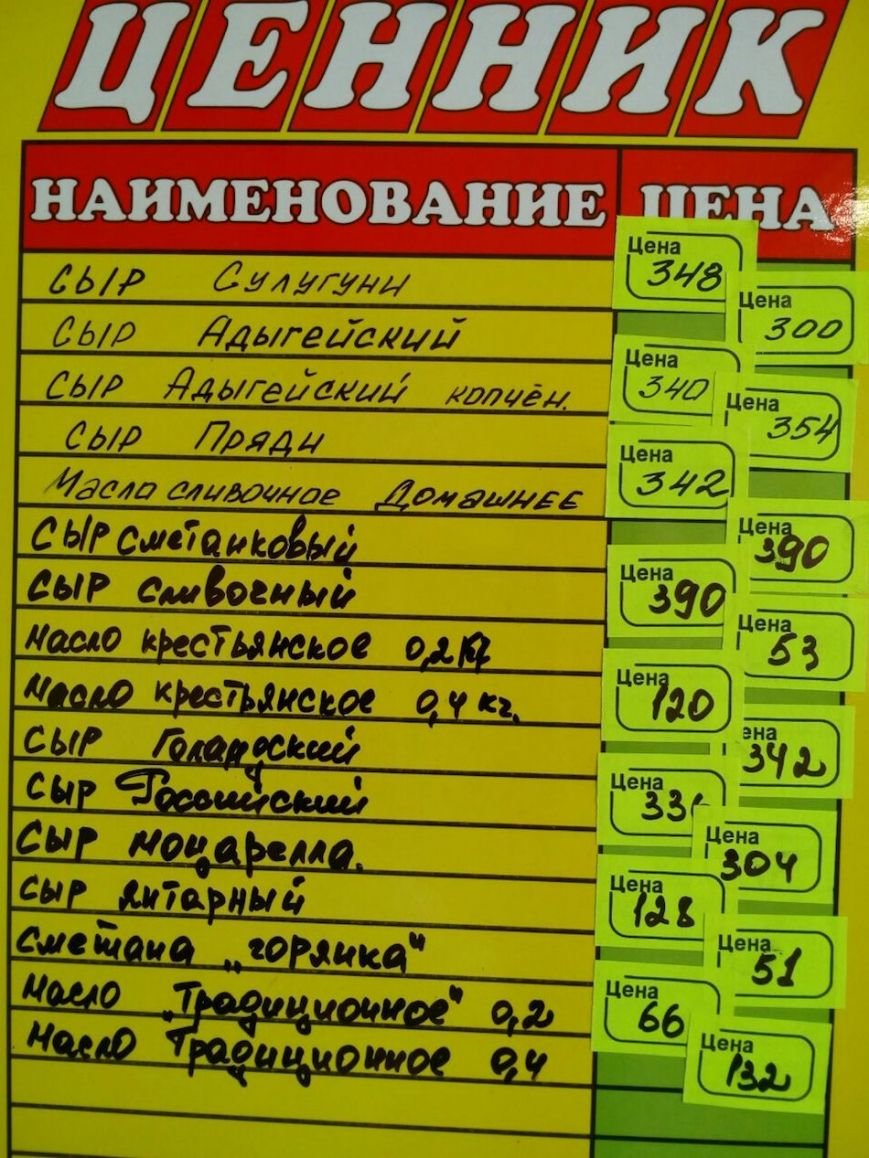 ЦЕННИК
НАИМЕНОВАНИЕ ЦЕНА
СЫР Сулугуни Цена 348
СЫР Адыгейский Цена 300
СЫР Адыгейский копчён. Цена 340
СЫР Пряди Цена 354
Масло сливочное Домашнее Цена 342
СЫР сметанковый Цена 390
СЫР сливочный Цена 390
масло крестьянское 0,2 кг Цена 53
масло крестьянское 0,4 кг. Цена 120
СЫР Голандский ена 342
СЫР Российский Цена 336
СЫР моцарелла. Цена 304
СЫР янтарный Цена 128
сметана „горянка" Цена 51
масло „Традиционное" 0,2 Цена 66
масло Традиционное 0,4 Цена 132